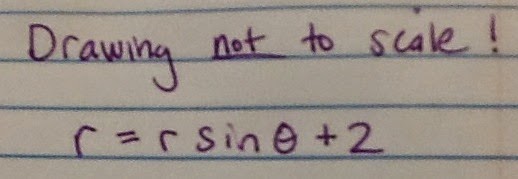 Drawing not to scale!
r = r sin θ + 2